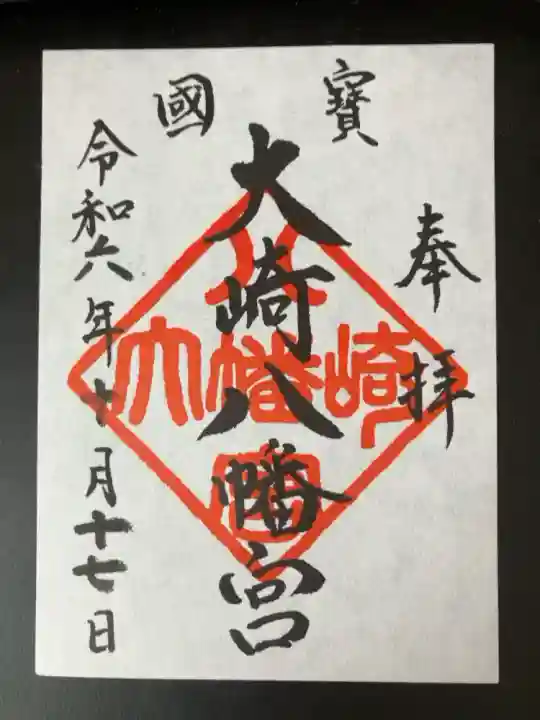 國寶
奉拝
大崎八幡宮
令和六年十月十七日
八
大幡崎
宮